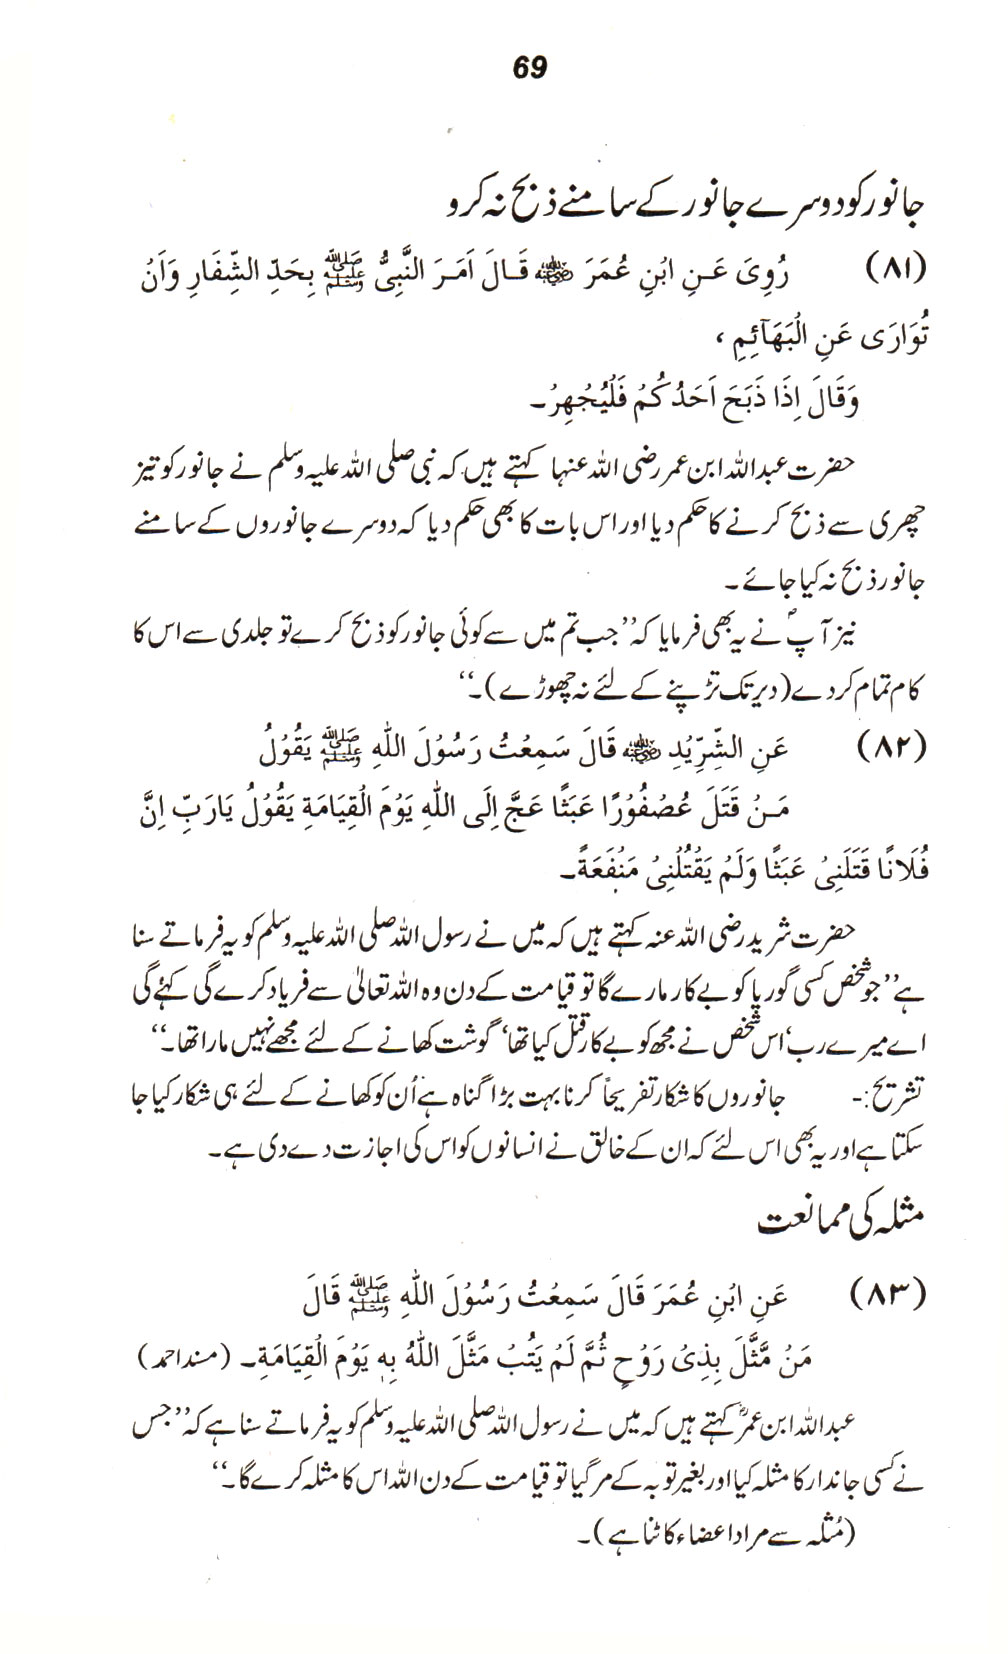 69
جانور کو دوسرے جانور کے سامنے ذبح نہ کرو
(۸۱) رُوِیَ عَنِ ابْنِ عُمَرَ رضی اللہ عنہ قَالَ اَمَرَ النَّبِیُّ ﷺ بِحَدِّ الشِّفَارِ وَاَنْ
تُوَارَی عَنِ الْبَهَآئِمِ ،
وَقَالَ اِذَا ذَبَحَ اَحَدُکُمْ فَلْیُجْهِزْ۔
حضرت عبداللہ ابن عمر رضی اللہ عنہا کہتے ہیں کہ نبی صلی اللہ علیہ وسلم نے جانور کو تیز
چھری سے ذبح کرنے کا حکم دیا اور اس بات کا بھی حکم دیا کہ دوسرے جانوروں کے سامنے
جانور ذبح نہ کیا جائے۔
نیز آپؐ نے یہ بھی فرمایا کہ ’’جب تم میں سے کوئی جانور کو ذبح کرے تو جلدی سے اس کا
کام تمام کر دے (دیر تک تڑپنے کے لئے نہ چھوڑے)۔‘‘
(۸۲) عَنِ الشِّرِیْدِ رضی اللہ عنہ قَالَ سَمِعْتُ رَسُوْلَ اللّٰهِ ﷺ یَقُوْلُ
مَنْ قَتَلَ عُصْفُوْرًا عَبَثًا عَجَّ اِلَی اللّٰهِ یَوْمَ الْقِیَامَةِ یَقُوْلُ یَارَبِّ اِنَّ
فُلَانًا قَتَلَنِیْ عَبَثًا وَلَمْ یَقْتُلْنِیْ مَنْفَعَةً۔
حضرت شرید رضی اللہ عنہ کہتے ہیں کہ میں نے رسول اللہ صلی اللہ علیہ وسلم کو یہ فرماتے سنا
ہے ’’جو شخص کسی گوریا کو بے کار مارے گا تو قیامت کے دن وہ اللہ تعالیٰ سے فریاد کرے گی کہئے گی
اے میرے رب‘ اس شخص نے مجھ کو بے کار قتل کیا تھا‘ گوشت کھانے کے لئے مجھے نہیں مارا تھا۔‘‘
تشریح:- جانوروں کا شکار تفریحاً کرنا بہت بڑا گناہ ہے‘ اُن کو کھانے کے لئے ہی شکار کیا جا
سکتا ہے اور یہ بھی اس لئے کہ ان کے خالق نے انسانوں کو اس کی اجازت دے دی ہے۔
مثلہ کی ممانعت
(۸۳) عَنِ ابْنِ عُمَرَ قَالَ سَمِعْتُ رَسُوْلَ اللّٰهِ ﷺ قَالَ
مَنْ مَّثَّلَ بِذِیْ رَوْحٍ ثُمَّ لَمْ یَتُبْ مَثَّلَ اللّٰهُ بِهٖ یَوْمَ الْقِیَامَةِ۔ (مسند احمد)
عبداللہ ابن عمرؓ کہتے ہیں کہ میں نے رسول اللہ صلی اللہ علیہ وسلم کو یہ فرماتے سنا ہے کہ ’’جس
نے کسی جاندار کا مثلہ کیا اور بغیر توبہ کے مر گیا تو قیامت کے دن اللہ اس کا مثلہ کرے گا۔‘‘
(مُثلہ سے مراد اعضاء کاٹنا ہے)۔